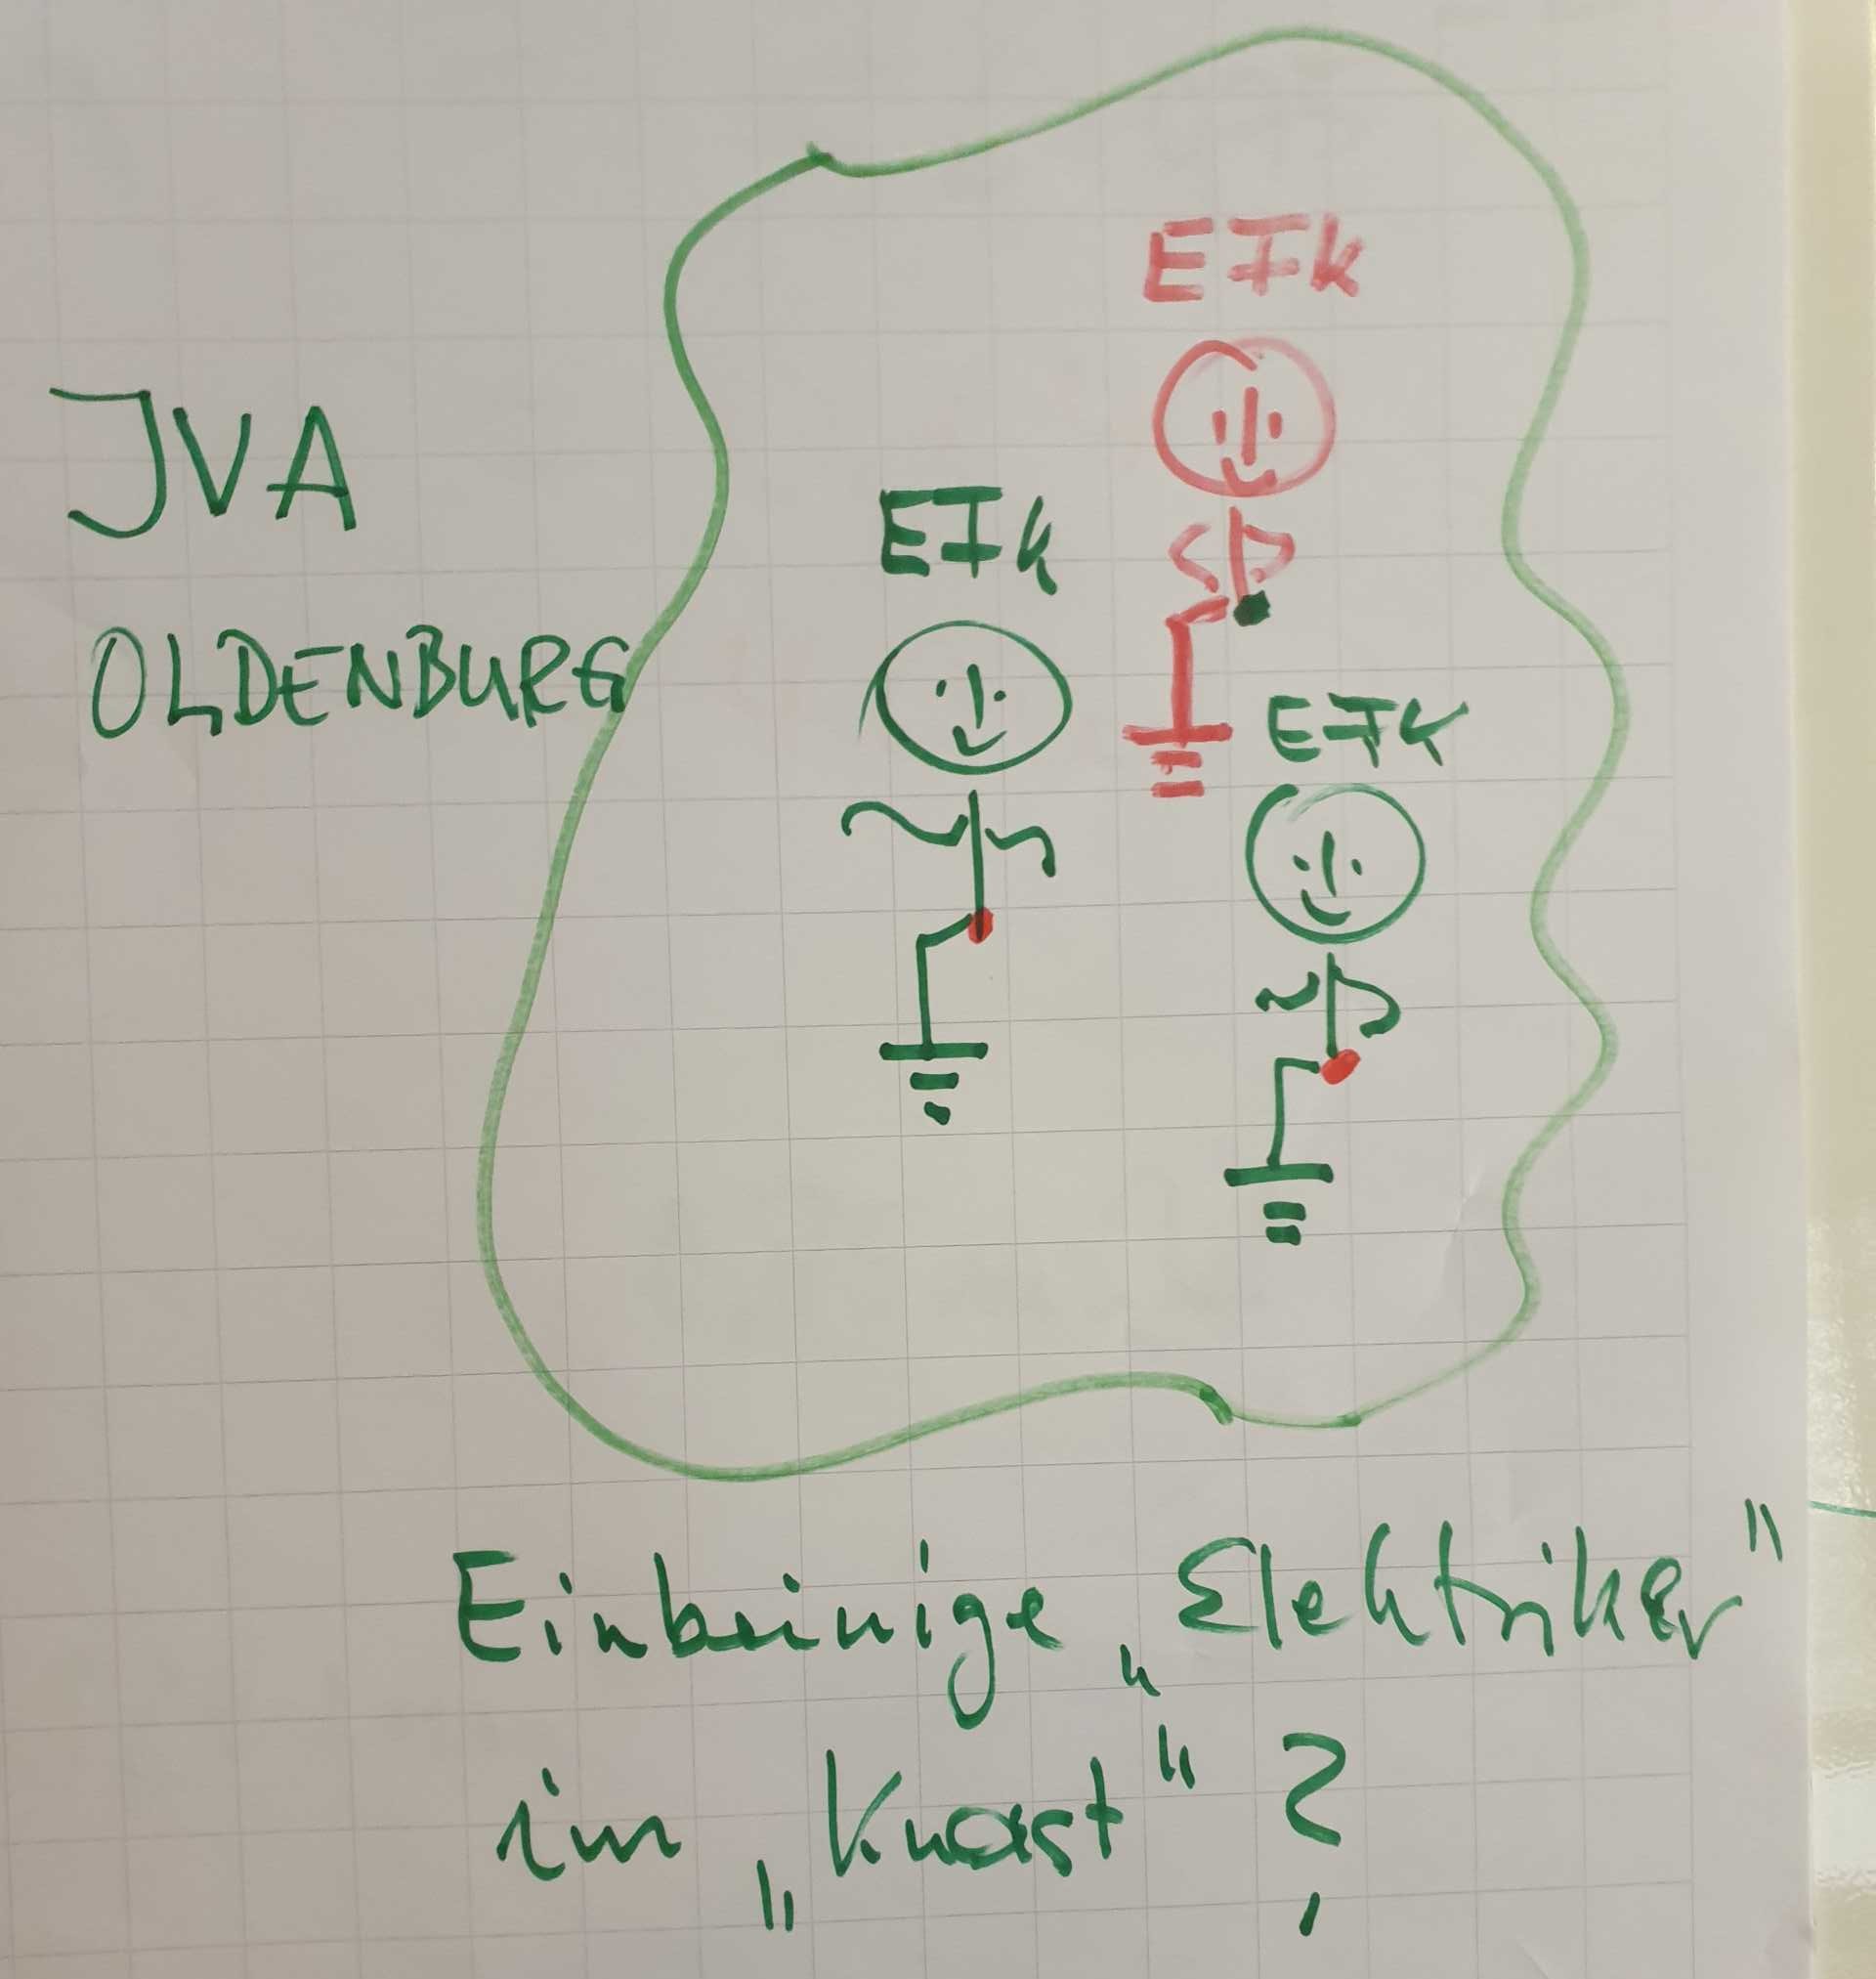 JVA
OLDENBURG
EFK
EFK
EFK
Einbeinige „Elektriker"
im „Knast" ?